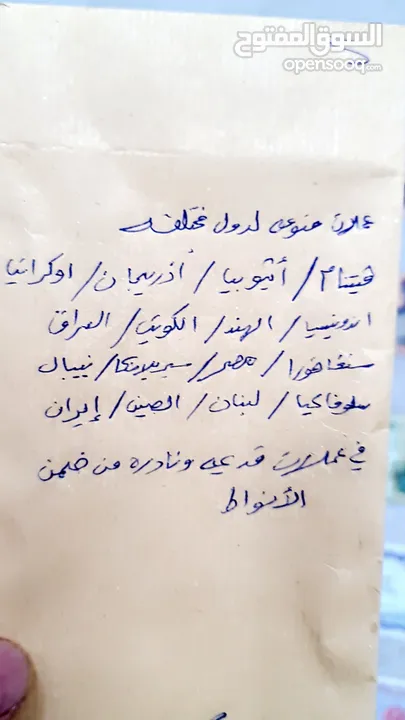 السوق المفتوح
opensooq.com
عملات منوعه لدول مختلفه
فيتنام / أثيوبيا / أذربيجان / اوكرانيا
اندونيسيا / الهند / الكويت / العراق
سنغافورا / مصر / سيريلانكا / نيبال
سلوفاكيا / لبنان / الصين / إيران
في عملات قديمه ونادره من ضمن
الأنواط